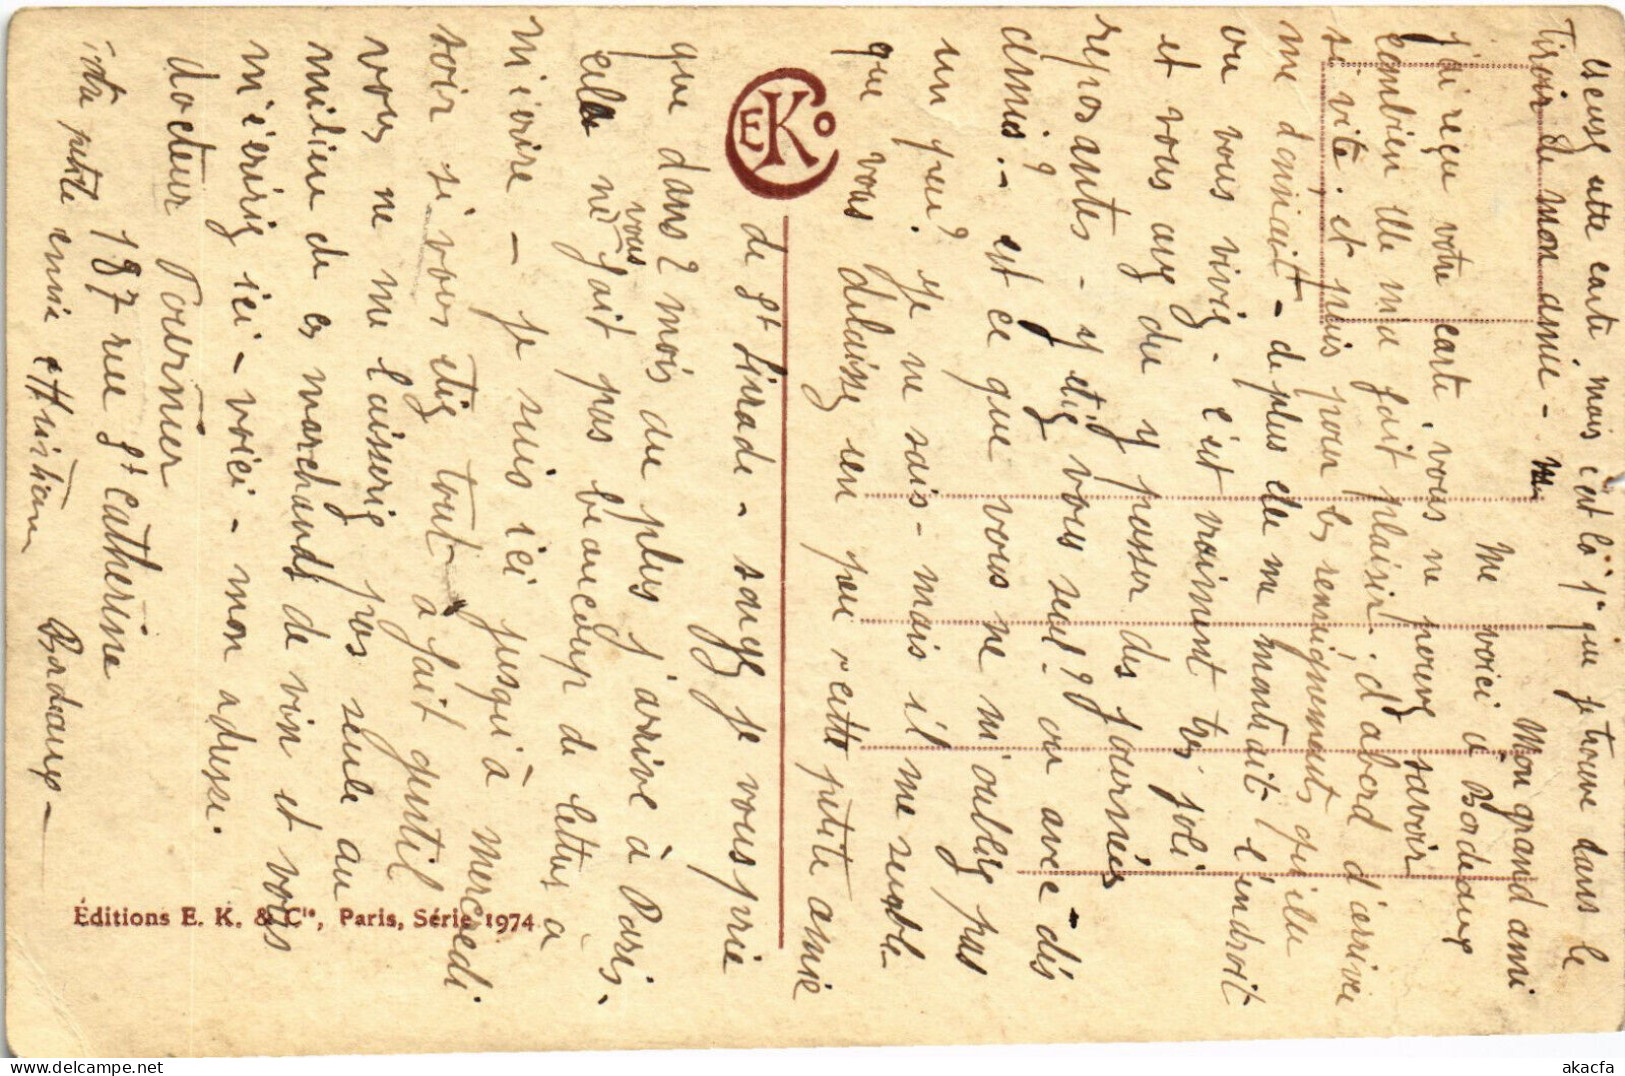 excusez cette carte mais c'est la 1re que je trouve dans le
tiroir de mon amie -
Mon grand ami
Me voici à Bordeaux
j'ai reçu votre carte, vous ne pouvez savoir
combien elle m'a fait plaisir. d'abord d'arriver
si vite, et puis pour les renseignements qu'elle
me donnait - de plus elle me montrait l'endroit
où vous vivez. c'est vraiment très joli
et vous avez du y passer des journées
reposantes - y étiez vous seul? ou avec des
amis? - est ce que vous ne m'oubliez pas
un peu? Je ne sais - mais il me semble
que vous délaissez un peu cette petite amie
de St Livrade - savez je vous prie
que dans 2 mois au plus j'arrive à Paris.
cela ne vous fait pas beaucoup de lettres à
m'écrire - je suis ici jusqu'à mercredi
soir si vous étiez tout à fait gentil
vous ne me laisseriez pas seule au
milieu de ces marchands de vin et vous
m'écririez ici - voici - mon adresse.
docteur Fournier
187 rue St Catherine
Bordeaux -
votre petite amie Christiane
EKo
Éditions E. K. & Cie, Paris, Série 1974
akacfa